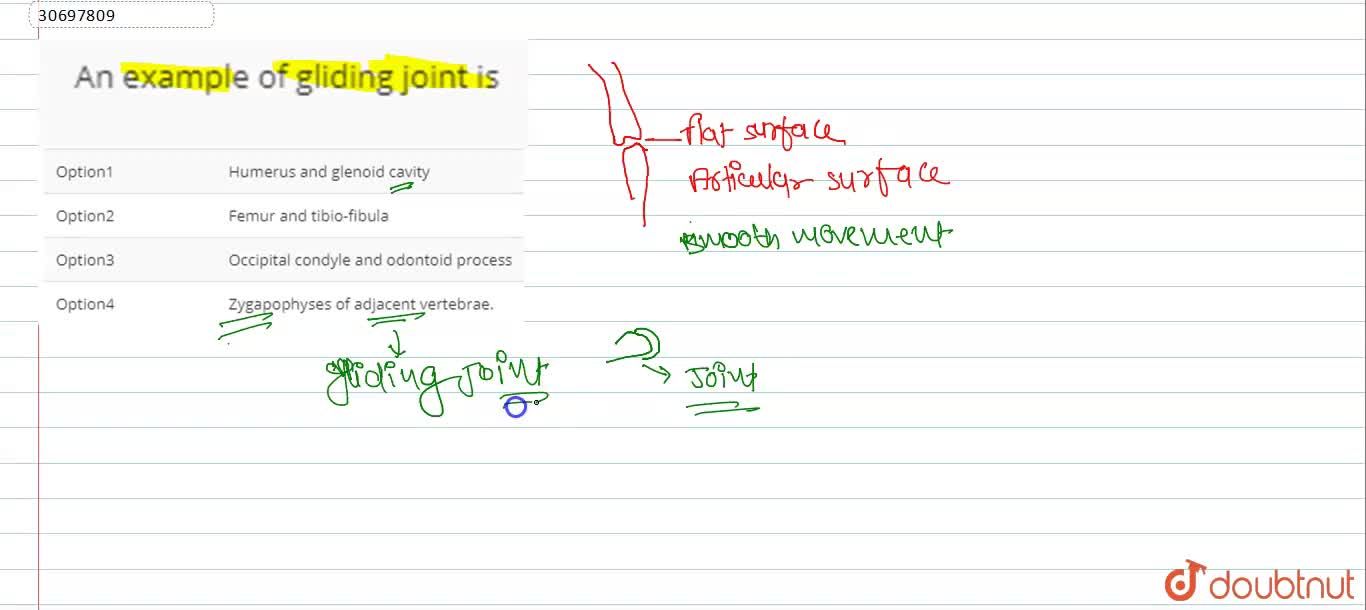 30697809
An example of gliding joint is
Option1 Humerus and glenoid cavity
Option2 Femur and tibio-fibula
Option3 Occipital condyle and odontoid process
Option4 Zygapophyses of adjacent vertebrae.
flat surface
Articular surface
smooth movement
gliding joint
Joint
doubtnut